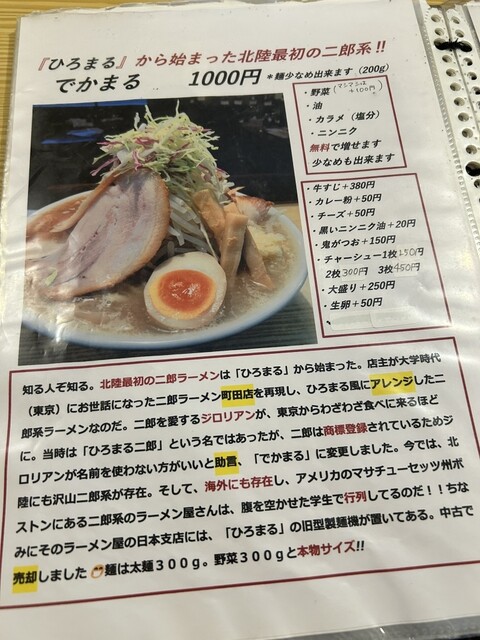 『ひろまる』から始まった北陸最初の二郎系!!
でかまる 1000円 *麺少なめ出来ます（200g）
・野菜（マシマシは+100円）
・油
・カラメ（塩分）
・ニンニク
無料で増せます
少なめも出来ます
・牛すじ+380円
・カレー粉+50円
・チーズ+50円
・黒いニンニク油+20円
・鬼がつお+150円
・チャーシュー1枚150円
2枚300円 3枚450円
・大盛り+250円
・生卵+50円
知る人ぞ知る。北陸最初の二郎ラーメンは「ひろまる」から始まった。店主が大学時代
（東京）にお世話になった二郎ラーメン町田店を再現し、ひろまる風にアレンジした二
郎系ラーメンなのだ。二郎を愛するジロリアンが、東京からわざわざ食べに来るほど
に。当時は「ひろまる二郎」という名ではあったが、二郎は商標登録されているためジ
ロリアンが名前を使わない方がいいと助言、「でかまる」に変更しました。今では、北
陸にも沢山二郎系が存在。そして、海外にも存在し、アメリカのマサチューセッツ州ボ
ストンにある二郎系のラーメン屋さんは、腹を空かせた学生で行列してるのだ！！ちな
みにそのラーメン屋の日本支店には、「ひろまる」の旧型製麺機が置いてある。中古で
売却しました 麺は太麺３００ｇ。野菜３００ｇと本物サイズ!!